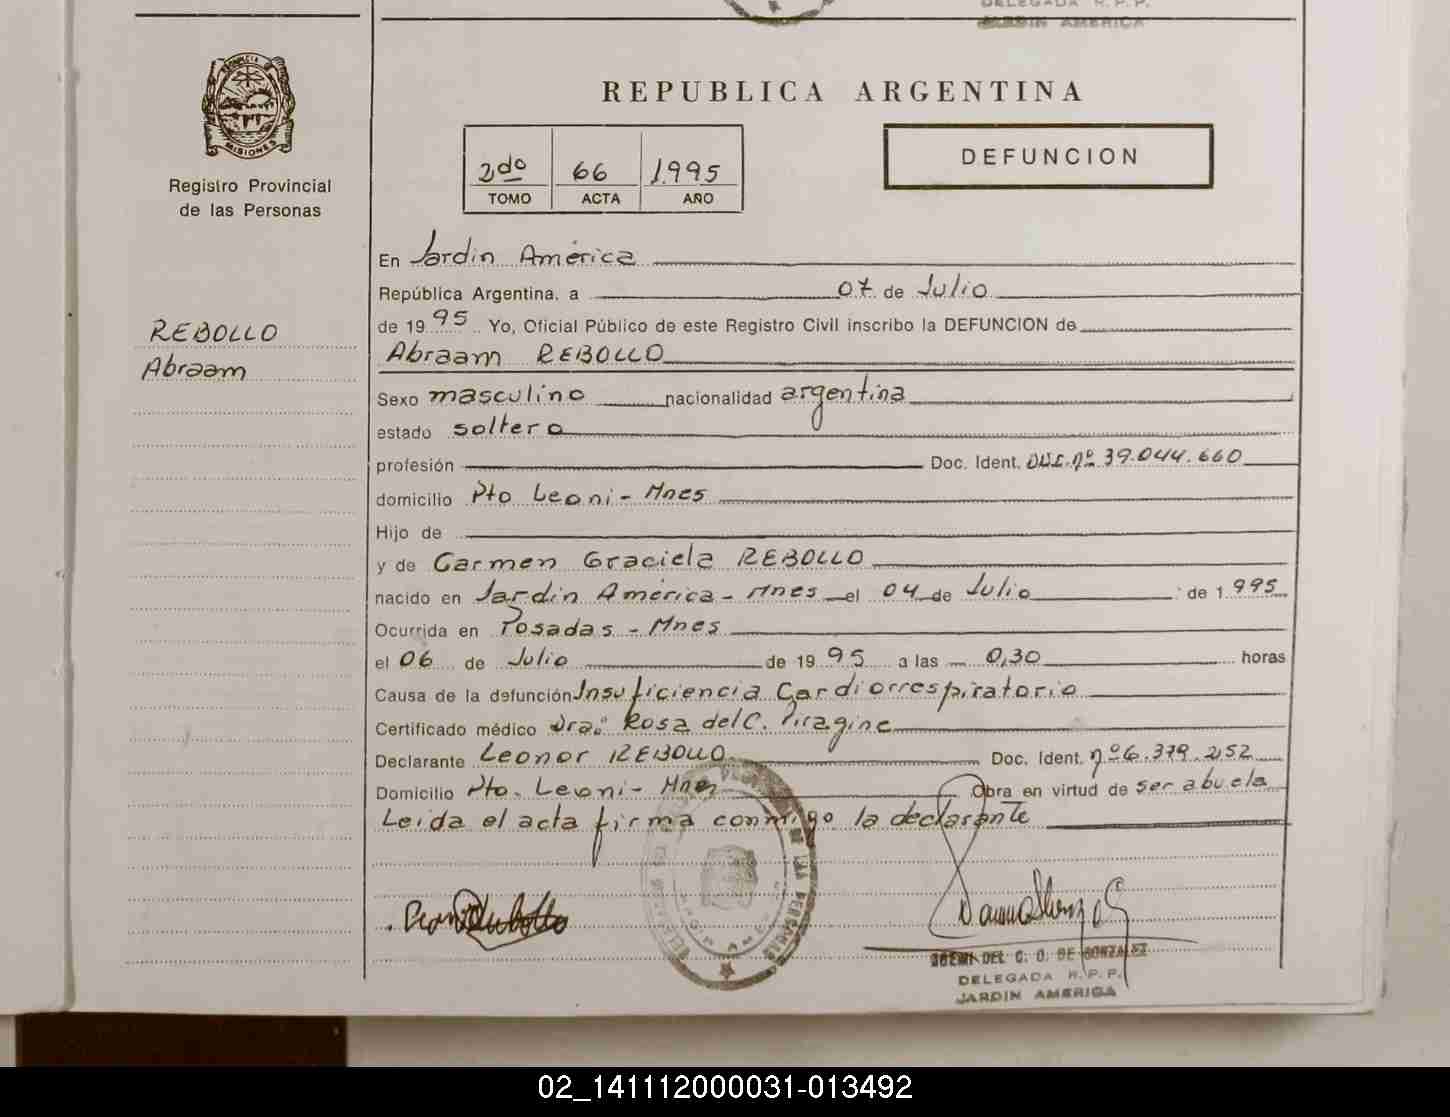 DELEGADA R. P. P.
JARDIN AMERICA
PROVINCIA DE
MISIONES
Registro Provincial
de las Personas
REBOLLO
Abraam
REPUBLICA ARGENTINA
2do 66 1.995
TOMO ACTA AÑO
DEFUNCION
En Jardin América
República Argentina, a 07 de Julio
de 19 95 Yo, Oficial Público de este Registro Civil inscribo la DEFUNCION de
Abraam REBOLLO
Sexo masculino nacionalidad argentina
estado soltero
profesión Doc. Ident. nº 39.044.660
domicilio Pto Leoni - Mnes
Hijo de
y de Carmen Graciela REBOLLO
nacido en Jardin América - Mnes el 04 de Julio de 1.995
Ocurrida en Posadas - Mnes
el 06 de Julio de 19 95 a las 0,30 horas
Causa de la defunción Insuficiencia Cardiorrespiratorio
Certificado médico Dra. Rosa del C. Piragine
Declarante Leonor REBOLLO Doc. Ident. nº 6.379.252
Domicilio Pto. Leoni - Mnes Obra en virtud de ser abuela
Leida el acta firma conmigo la declarante
DEL C. O. DE GONZALEZ
DELEGADA R. P. P.
JARDIN AMERICA
02_141112000031-013492